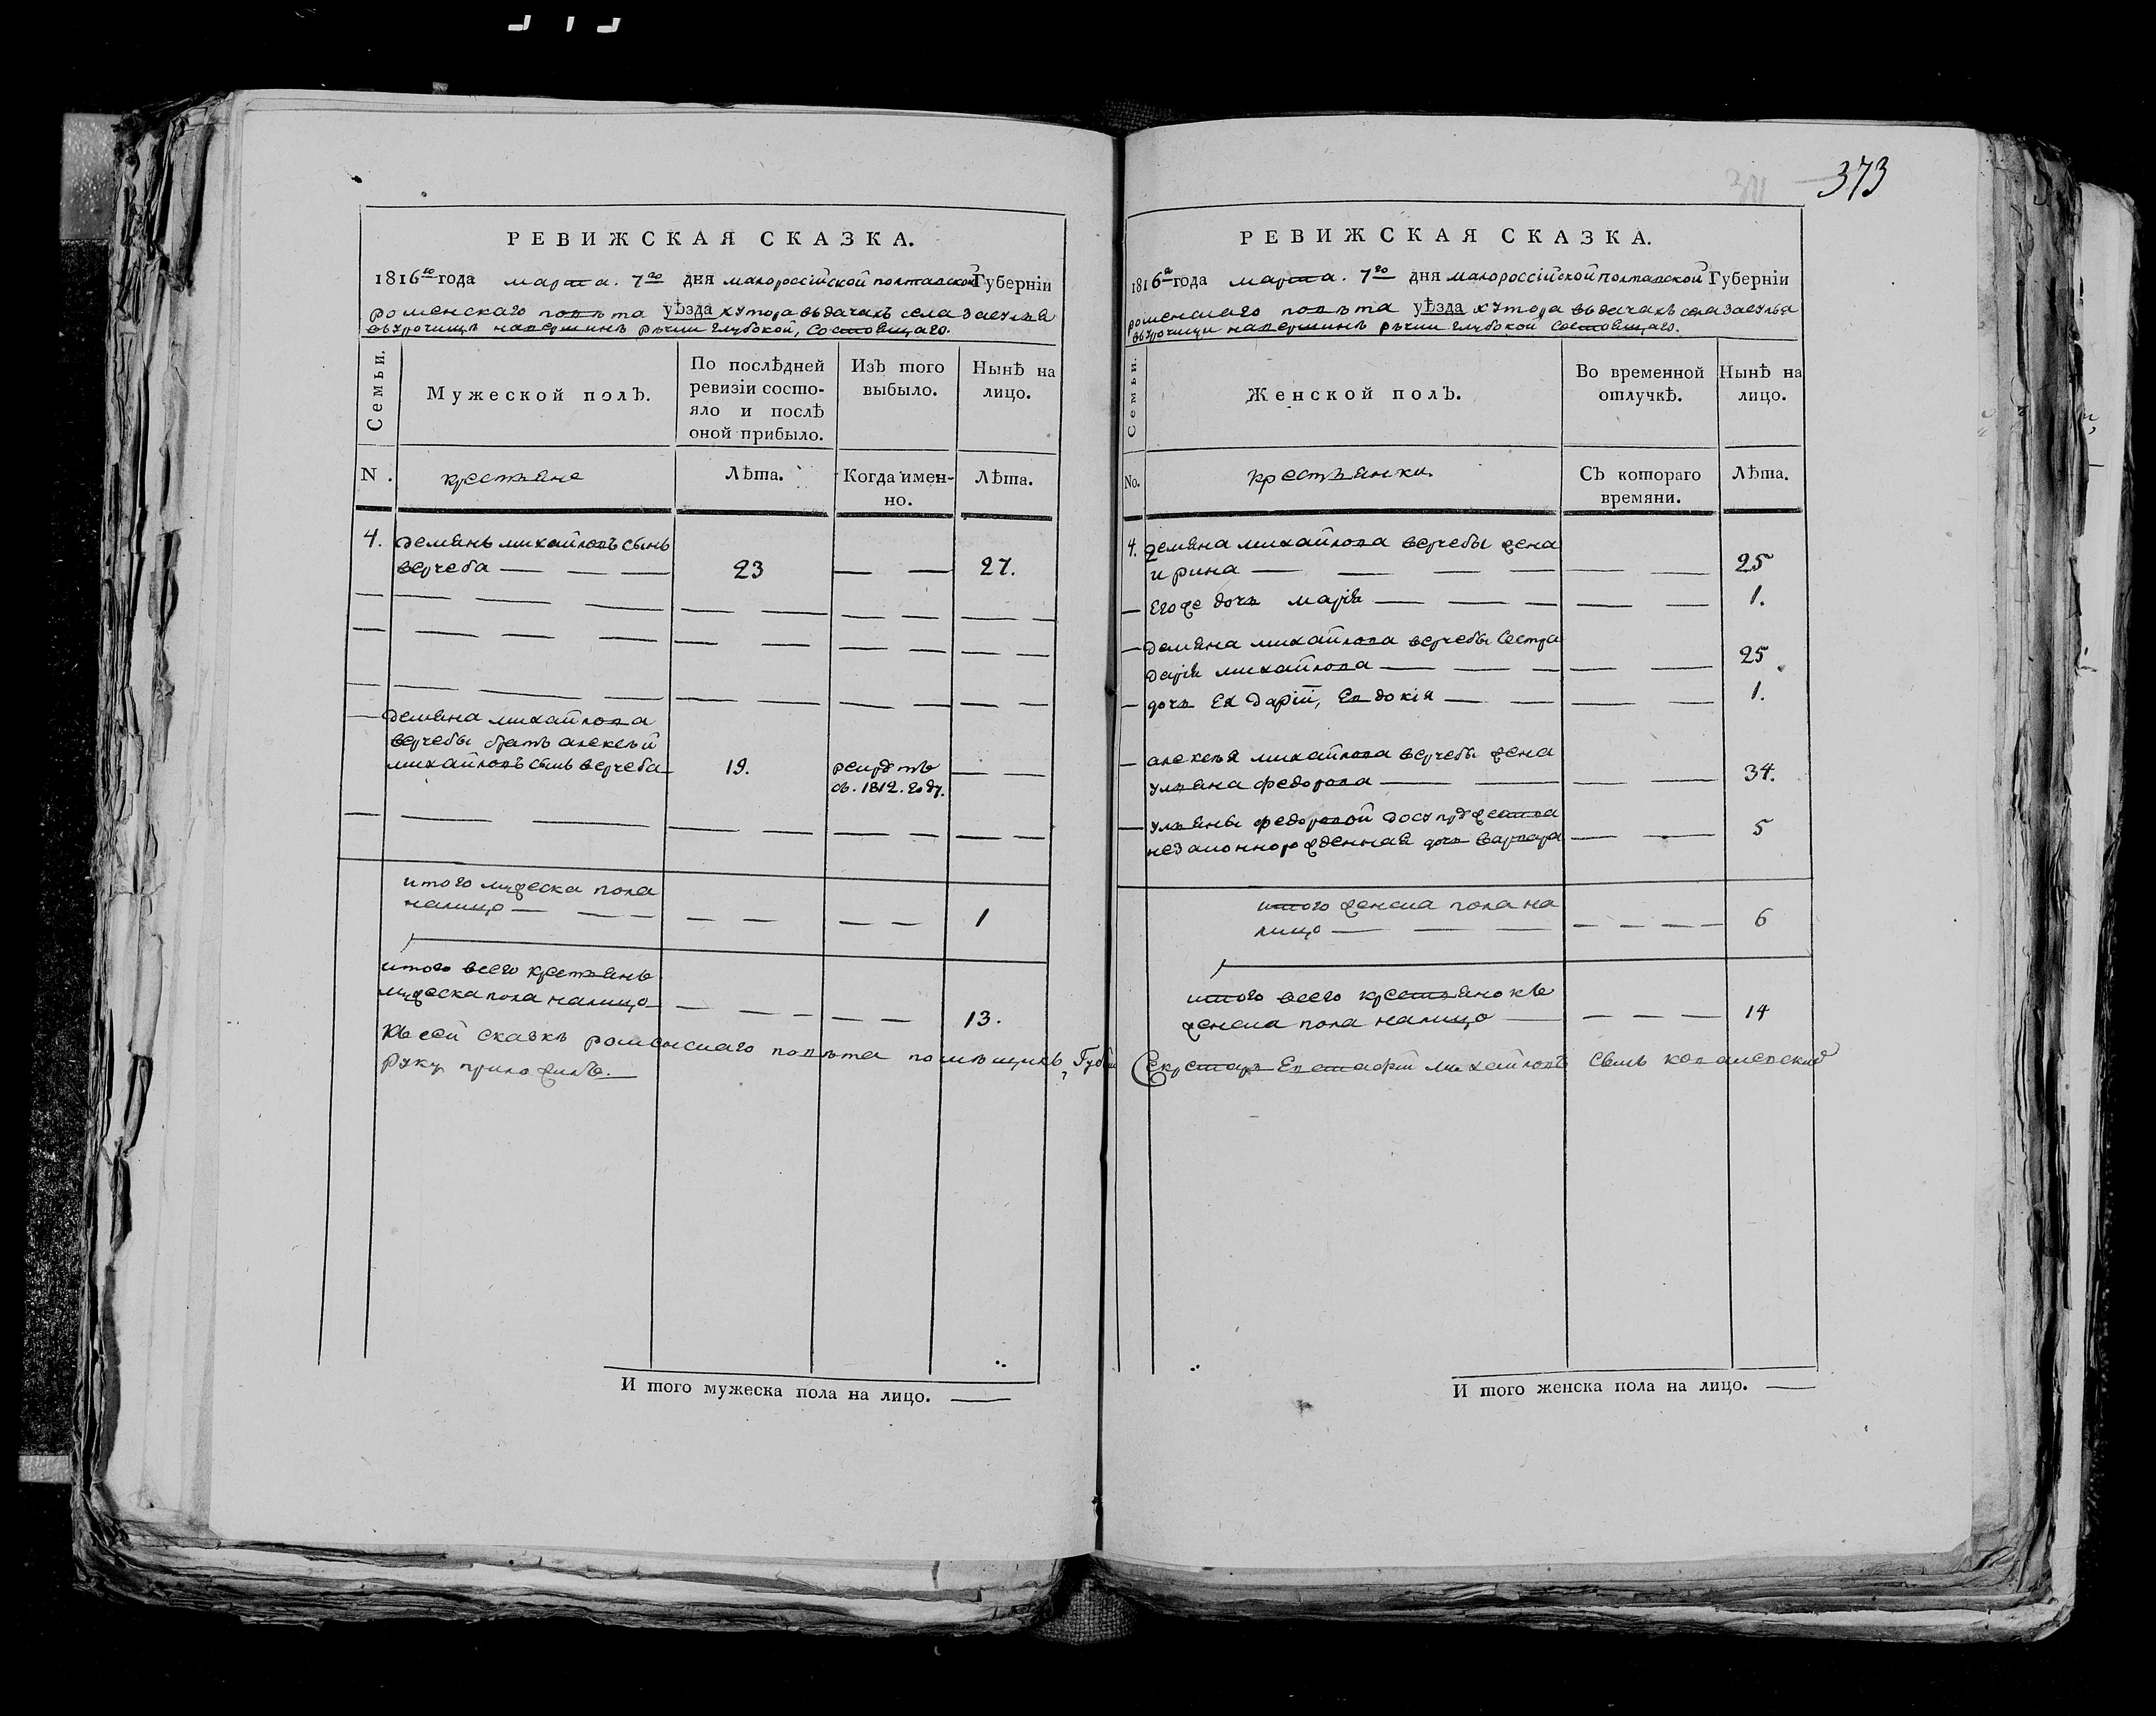 373
РЕВИЖСКАЯ СКАЗКА.
1816го года марта. 7го дня малороссійской полтавской Губерніи
роменскаго повѣта уѣзда хутора въ дачахъ села Засулья
въ урочищѣ на вершинѣ рѣчки глубокой, состоящаго.
Семьи.
Мужеской полъ.
По послѣдней
ревизіи состо-
яло и послѣ
оной прибыло.
Изъ того
выбыло.
Нынѣ на
лицо.
N.
крестьяне
Лѣта.
Когда имен-
но.
Лѣта.
4. демянъ михайловъ сынъ
верчеба — — — 23 — — 27.
— демяна михайлова
верчебы братъ алексѣй
михайловъ сынъ верчеба — 19. рекрутъ — —
въ. 1812. году.
итого мужеска пола
налицо — — — — — — — 1
итого всего крестьянъ
мужеска пола налицо — — — — — — 13.
Къ сей сказкѣ роменскаго повѣта помѣщикъ, Губ:
руку приложилъ.
И того мужеска пола на лицо. —
РЕВИЖСКАЯ СКАЗКА.
1816го года марта. 7го дня малороссійской полтавской Губерніи
роменскаго повѣта уѣзда хутора въ дачахъ села Засулья
въ урочищи на вершинѣ рѣчки глубокой состоящаго.
Семьи.
Женской полъ.
Во временной
отлучкѣ.
Нынѣ на
лицо.
No.
крестьянки
Съ котораго
времяни.
Лѣта.
4. демяна михайлова верчебы жена
ирина — — — — — — 25
— Его же дочь марія — — — — — 1.
— демяна михайлова верчебы сестра
дарія михайлова — — — — — 25
— дочь Ея Дарій, Евдокія — — — — 1.
— алексѣя михайлова верчебы жена
ульяна федорова — — — — — 34.
— ульяны федоровой
незаконнорожденная дочь варвара — — 5
итого женска пола на
лицо — — — — — — — 6
итого всего крестьянокъ
женска пола налицо — — — — 14
Секретарь Евстафій михайловъ сынъ
И того женска пола на лицо. —